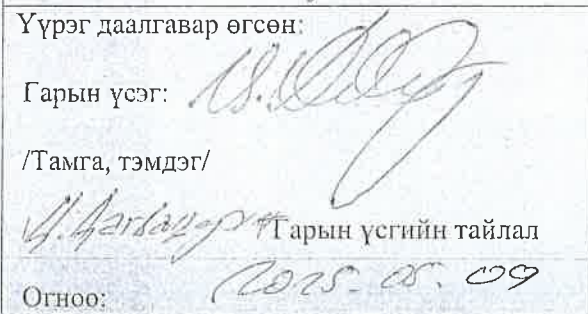 Үүрэг даалгавар өгсөн:
Гарын үсэг:
/Тамга, тэмдэг/
Гарын үсгийн тайлал
Огноо: 2025. 05. 09